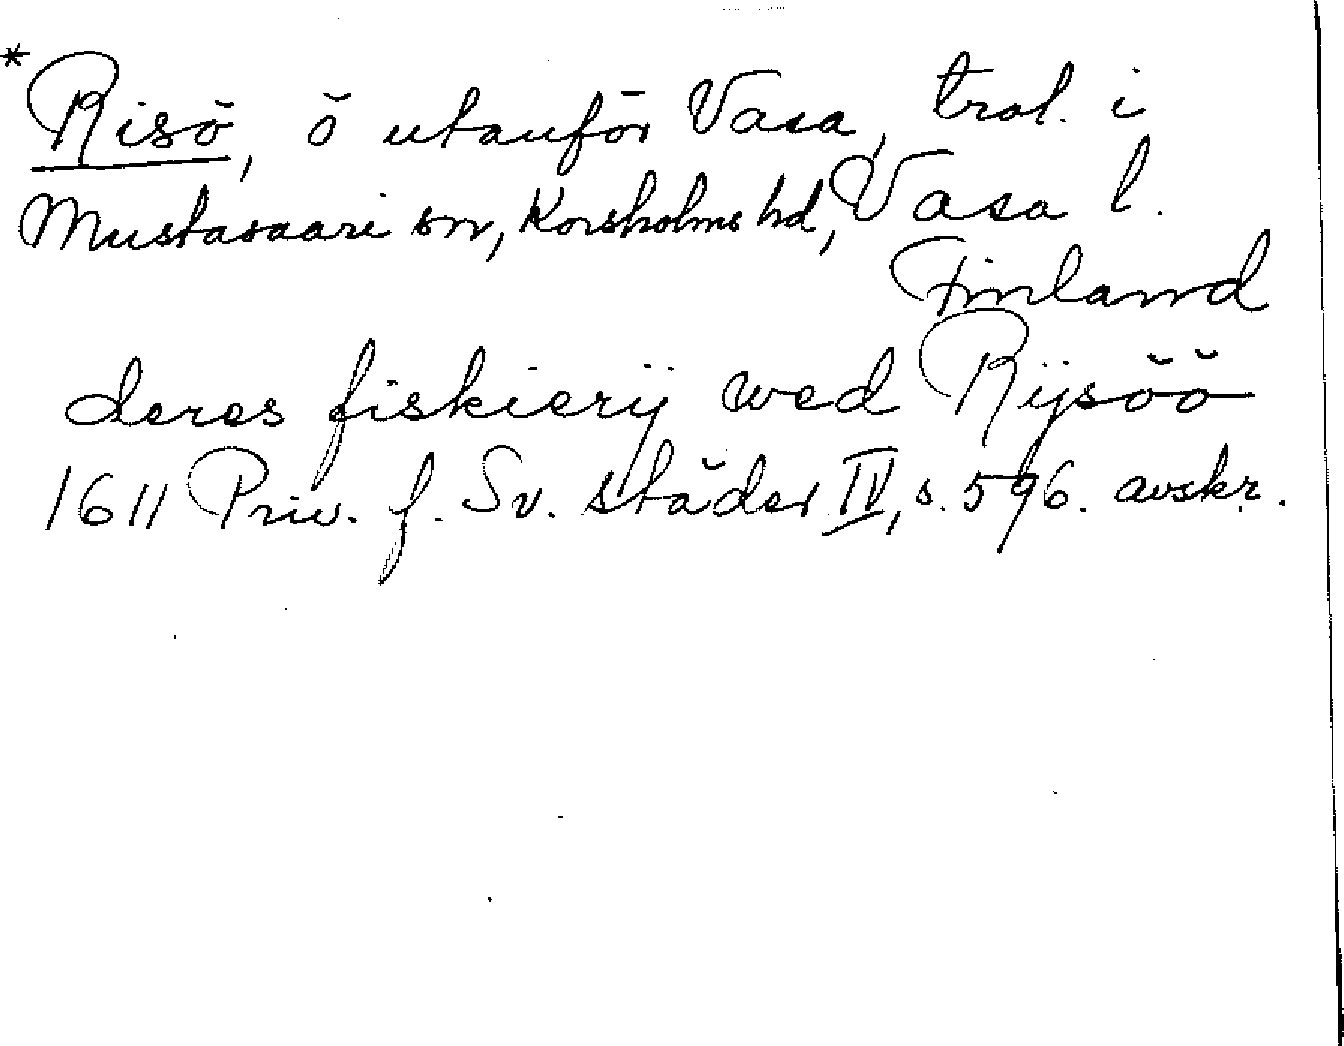 * Risö, ö utanför Vasa, trol. i
Mustasaari sn, Korsholms hd, Vasa l.
Finland
deres fiskierij wed Rijsöö
1611 Priv. f. Sv. städer IV, s. 596. avskr.